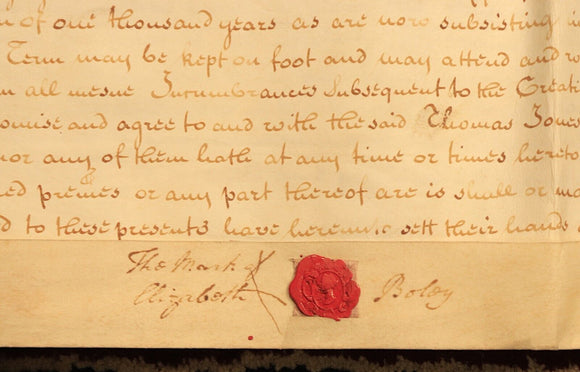 of one thousand years as are now subsisting
Term may be kept on foot and may attend and
all mesne Incumbrances Subsequent to the Creati
omise and agree to and with the said Thomas Jones
nor any of them hath at any time or times hereto
ed premes or any part thereof are is shall or ma
d to these presents have hereunto sett their hands
The Mark of
Elizabeth Boley